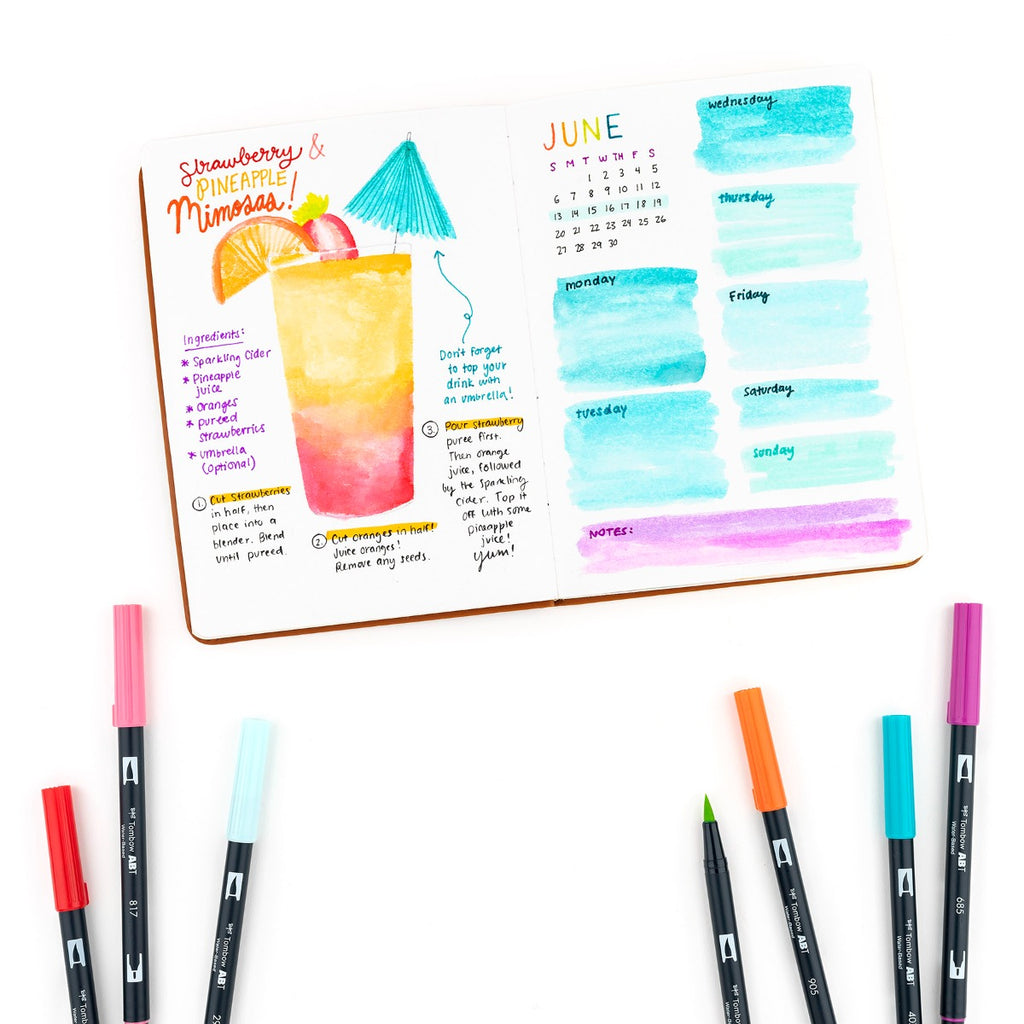 Strawberry &
PINEAPPLE
Mimosas!
Ingredients:
* Sparkling Cider
* Pineapple
juice
* Oranges
* pureed
strawberries
* umbrella
(optional)
① Cut Strawberries
in half, then
place into a
blender. Blend
until pureed.
② Cut oranges in half!
Juice oranges!
Remove any seeds.
Don't forget
to top your
drink with
an umbrella!
③ Pour strawberry
puree first.
Then orange
juice, followed
by the sparkling
cider. Top it
off with some
pineapple
juice!
yum!
JUNE
S M T W TH F S
1 2 3 4 5
6 7 8 9 10 11 12
13 14 15 16 17 18 19
20 21 22 23 24 25 26
27 28 29 30
monday
tuesday
wednesday
thursday
Friday
saturday
sunday
NOTES:
Tombow
Tombow ABT
Water-Based
817
Tombow ABT
Water-Based
29
Tombow
Tombow ABT
Water-Based
905
Tombow ABT
Water-Based
40
Tombow ABT
Water-Based
685